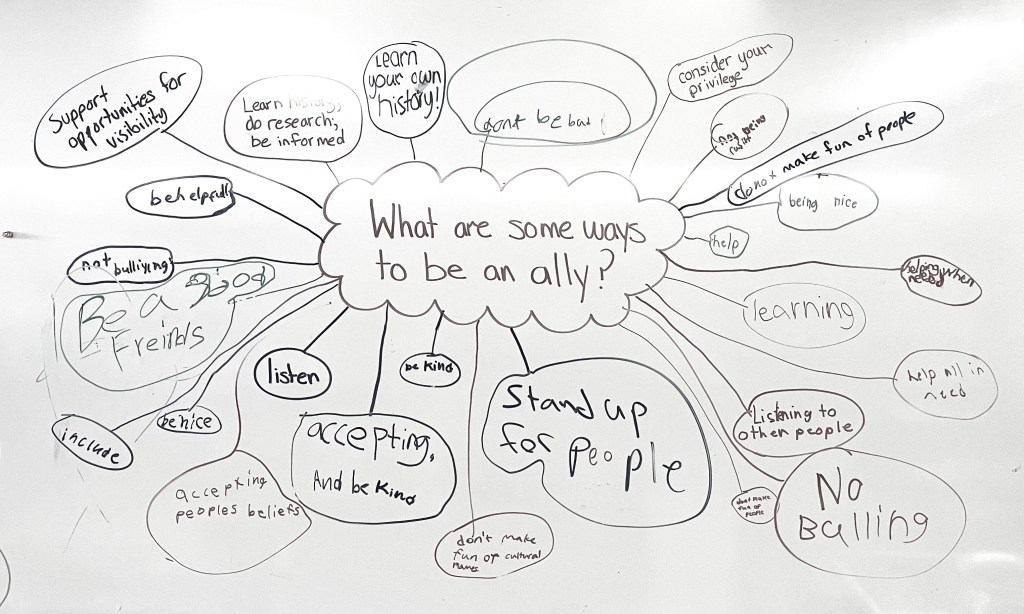 What are some ways
to be an ally?
Support
opportunities for
visibility
Learn history,
do research,
be informed
Learn
your own
history!
dont be bad!
consider your
privilege
not being
do not make fun of people
being nice
help
helping when
need
learning
help all in
need
Listening to
other people
No
Balling
dont make
fun of
people
Stand up
for People
don't make
fun of cultural
names
be kind
accepting,
And be kind
listen
accepting
peoples beliefs
be nice
include
Be a good
Freinds
not bulliying
be helpfull